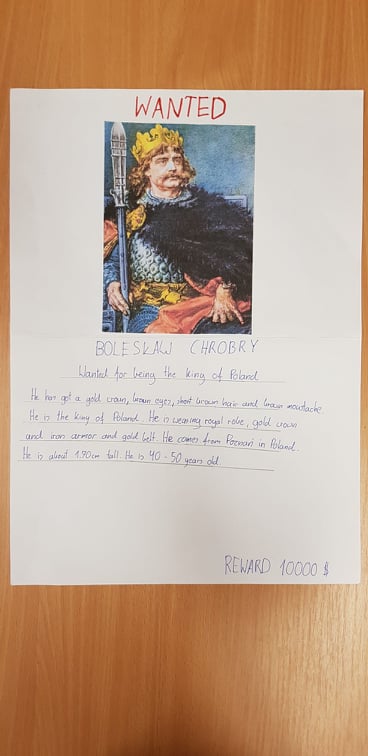 WANTED
BOLESŁAW CHROBRY
Wanted for being the King of Poland
He has got a gold crown, brown eyes, short brown hair and brown moustache.
He is the king of Poland. He is wearing royal robe, gold crown
and iron armor and gold belt. He comes from Poznań in Poland.
He is about 1.90cm tall. He is 40-50 years old.
REWARD 10000 $